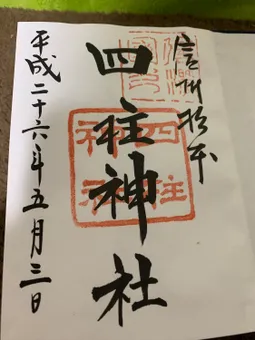 信州松本
四柱神社
平成二十六年五月三日